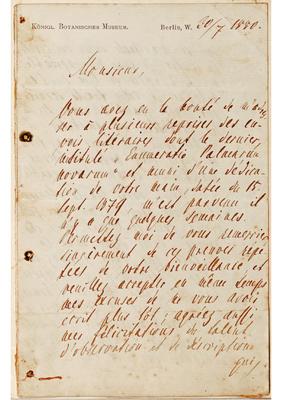 KÖNIGL. BOTANISCHES MUSEUM. Berlin, W. 20/7 1880.
Monsieur,
Vous avez eu la bonté de m'adres-
ser à plusieurs reprises des en-
vois literaires dont le dernier,
intitulé "Enumeratio Palmarum
novarum" et muni d'une dédica-
tion de votre main, datée du 15
Sept. 1879, m'est parvenu il
n'y a que quelques semaines.
Permettez moi de vous remercier
sincèrement de ces preuves répé-
tées de votre bienveillance, et
veuillez accepter en même temps
mes excuses de ne vous avoir
écrit plus tôt; agréez aussi
mes félicitations du talent
d'observation et de description
qui